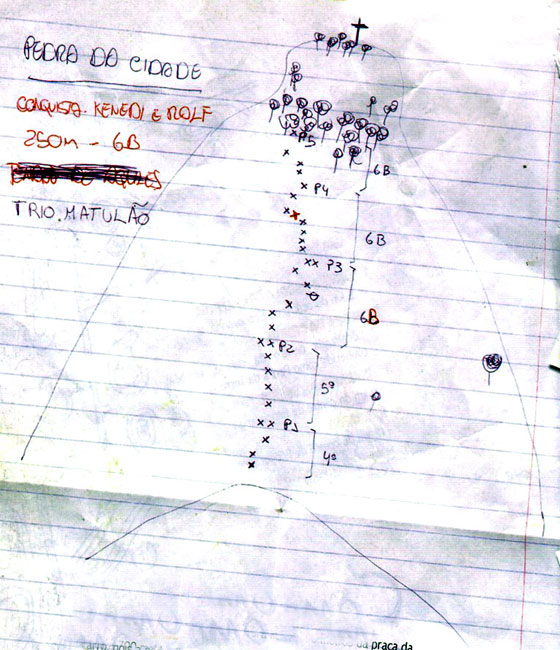 PEDRA DA CIDADE
CONQUISTA. KENEDI E ROLF
250M - 6B
TRIO.MATULÃO
P5
6B
P4
6B
P3
6B
P2
5º
P1
4º
praça.da